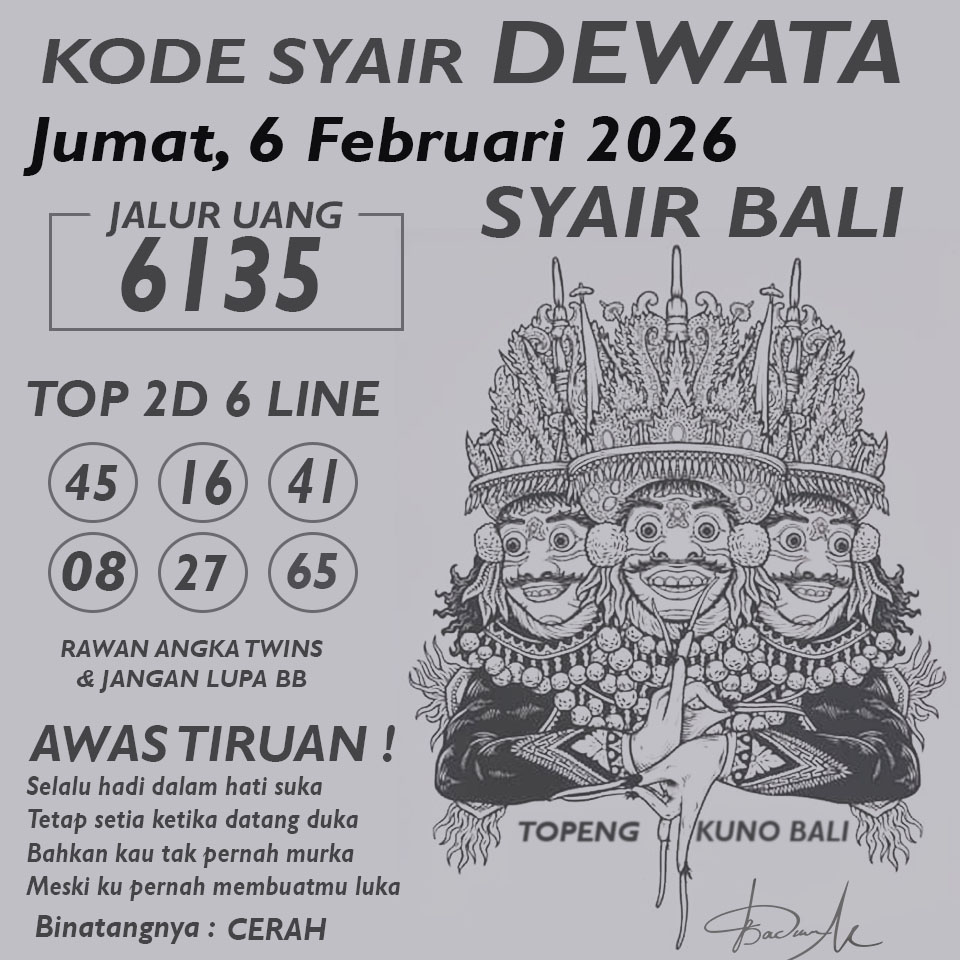 KODE SYAIR DEWATA
Jumat, 6 Februari 2026
SYAIR BALI
JALUR UANG
6135
TOP 2D 6 LINE
45 16 41
08 27 65
RAWAN ANGKA TWINS
& JANGAN LUPA BB
AWAS TIRUAN !
Selalu hadi dalam hati suka
Tetap setia ketika datang duka
Bahkan kau tak pernah murka
Meski ku pernah membuatmu luka
Binatangnya : CERAH
TOPENG KUNO BALI